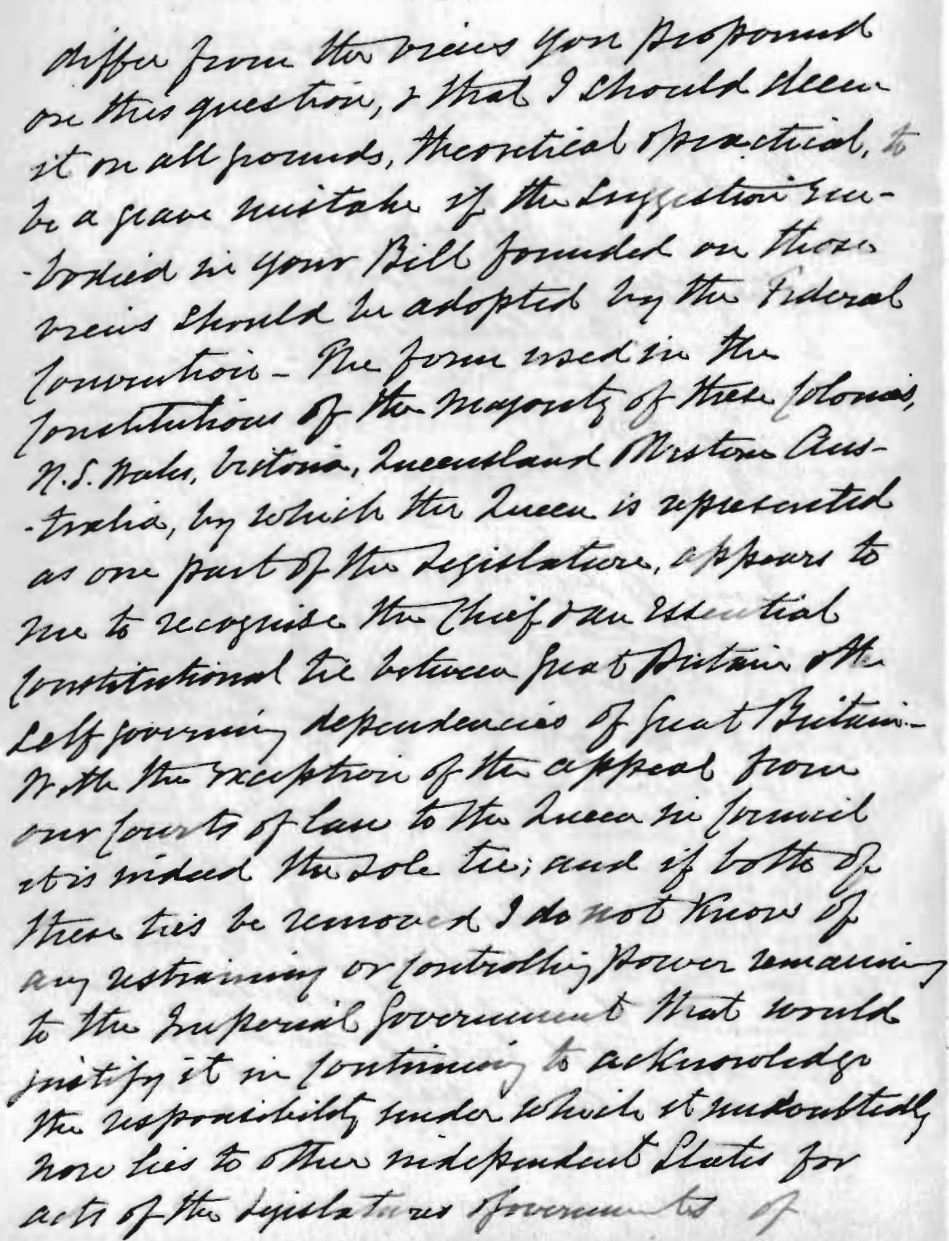 differ from the views you propound
on this question, & that I should deem
it on all grounds, theoretical & practical, to
be a grave mistake if the Suggestion em-
-bodied in your Bill founded on those
views should be adopted by the Federal
Convention - The form used in the
Constitutions of the Majority of these Colonies,
N.S. Wales, Victoria, Queensland & Western Aus-
-tralia, by which the Queen is represented
as one part of the Legislature, appears to
me to recognise the Chief & an Essential
Constitutional tie between Great Britain & the
Self governing dependencies of Great Britain -
With the exception of the appeal from
our Courts of law to the Queen in Council
it is indeed the sole tie; and if both of
these ties be removed I do not know of
any restraining or Controlling Power remaining
to the Imperial Government that would
justify it in Continuing to acknowledge
the responsibility under which it undoubtedly
now lies to other independent States for
acts of the Legislatures & Governments of